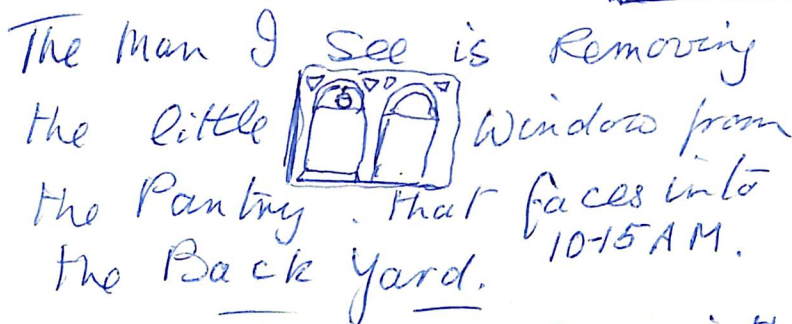 The Man I See is Removing
the little Window from
the Pantry. that faces into
10-15 AM.
the Back Yard.